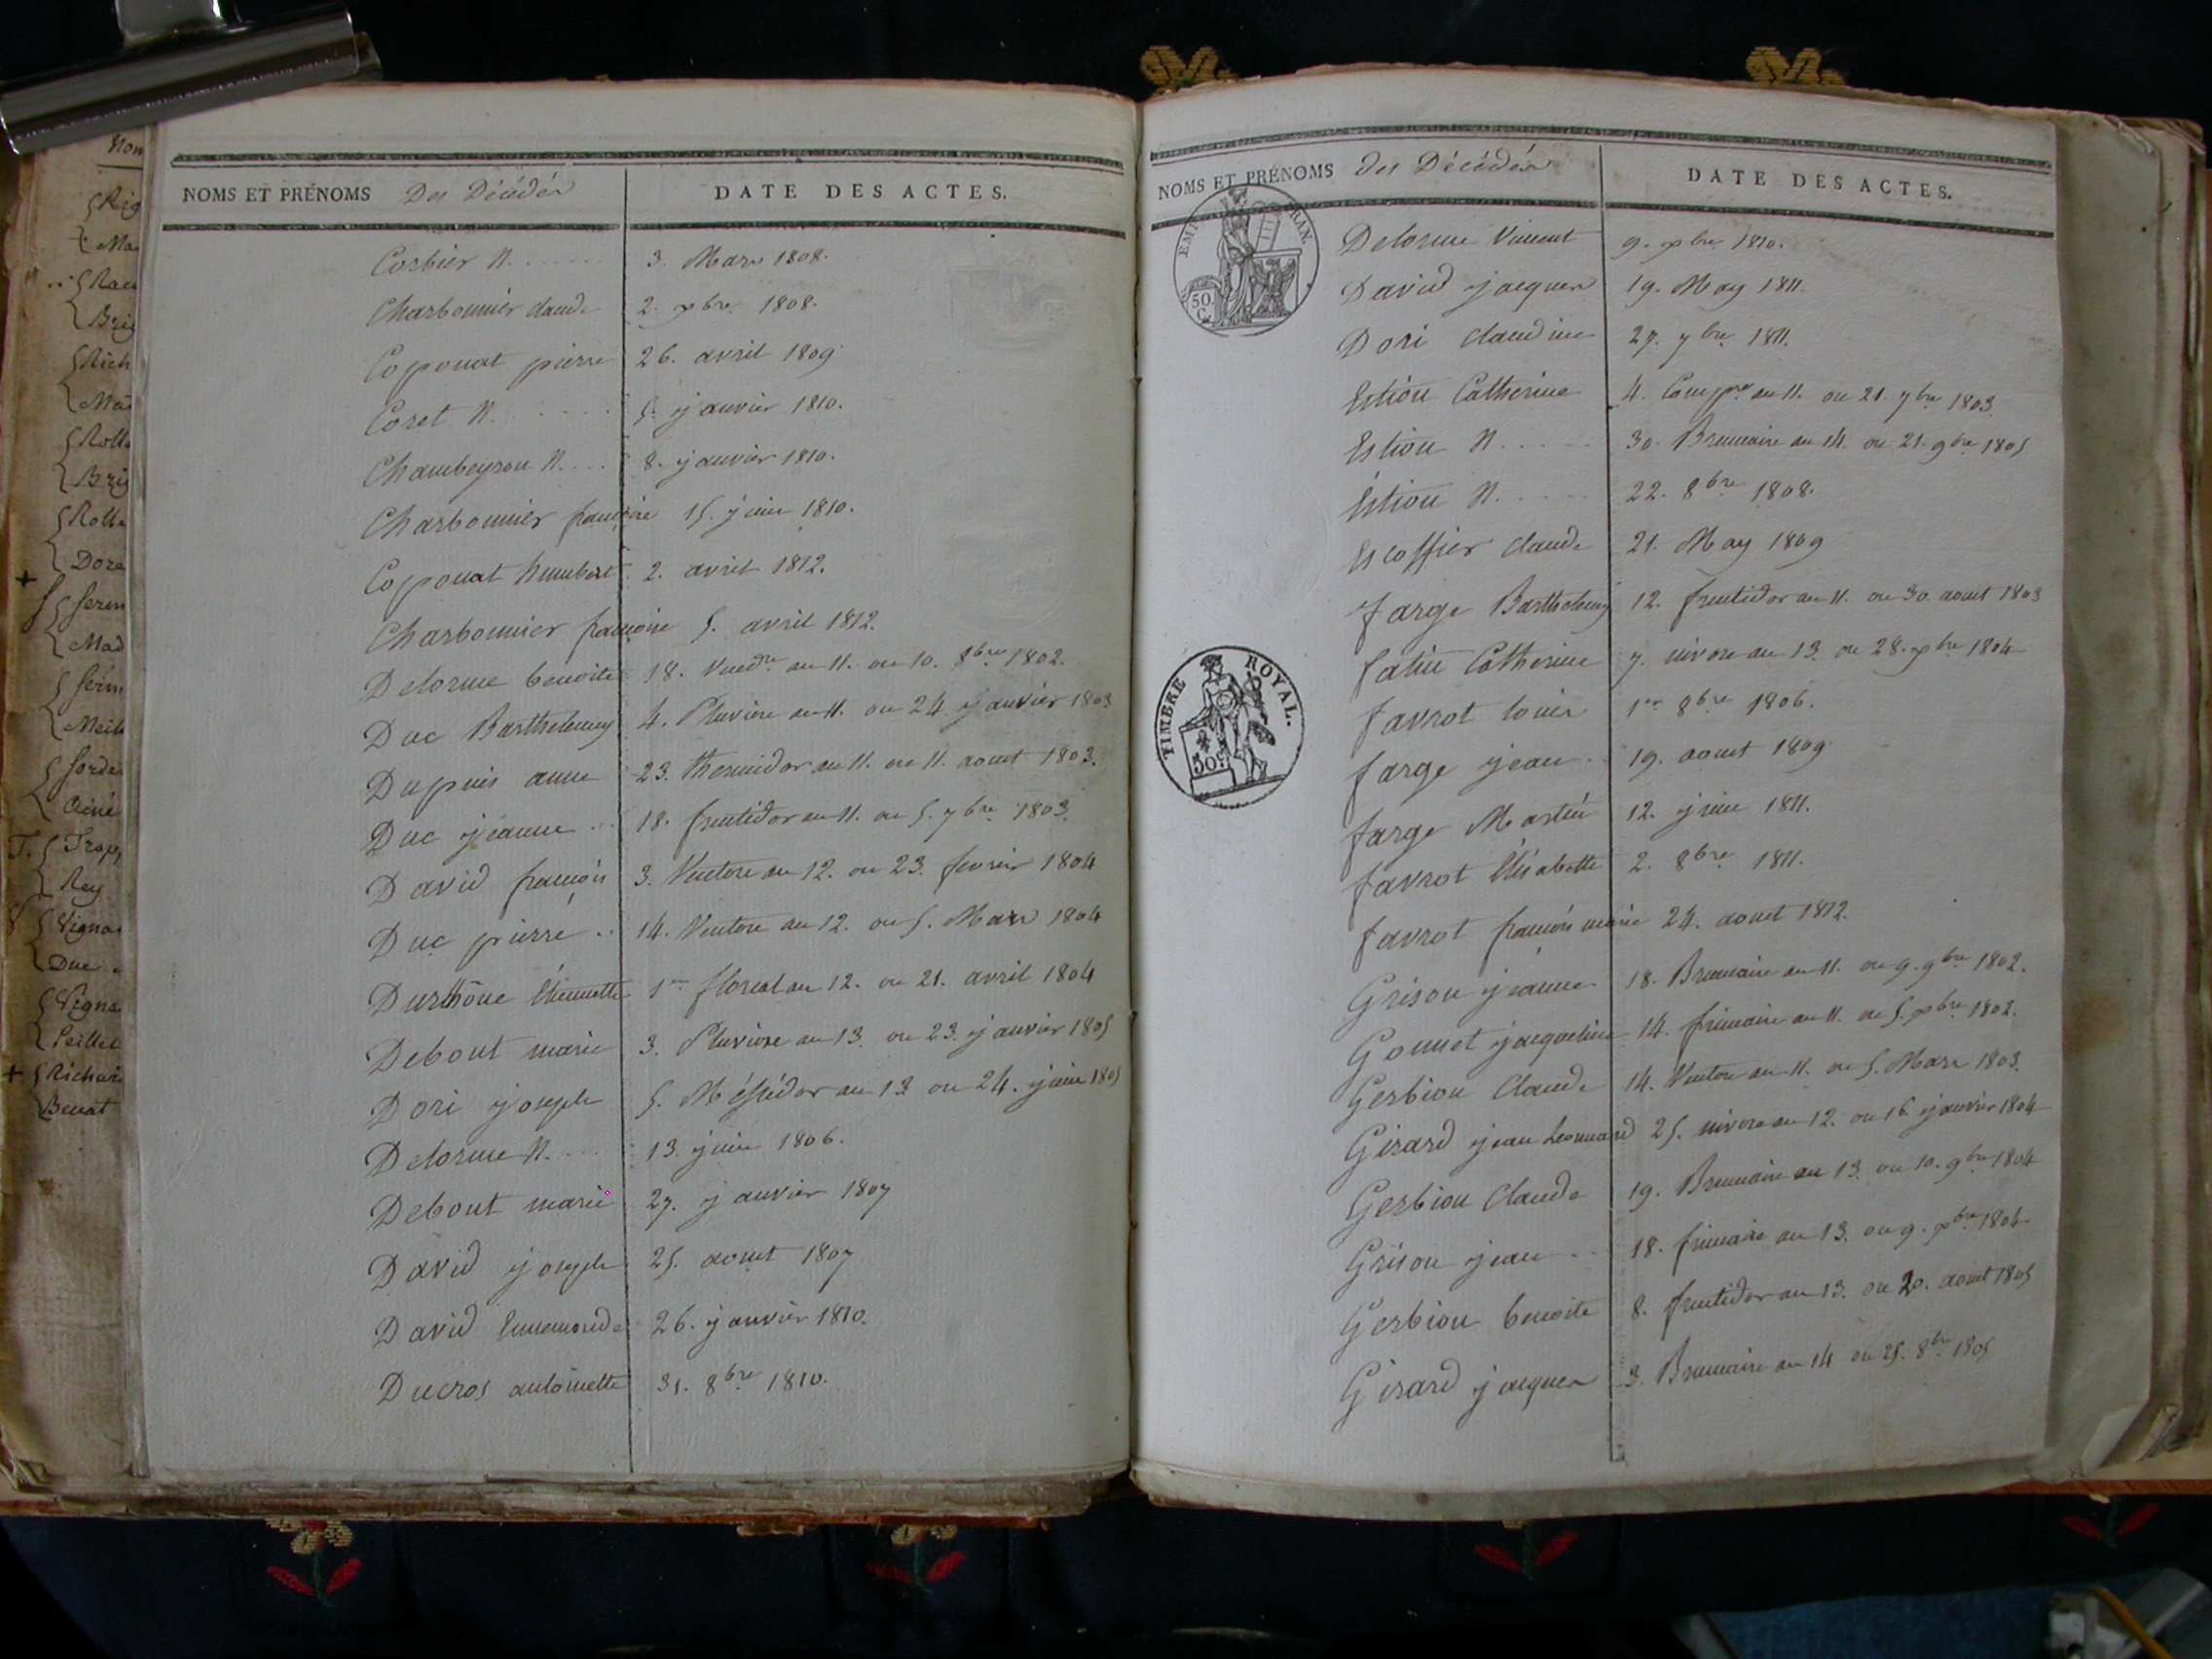 Nom
Rig
Ma
Rau
Brig
Rich
Ma
Roll
Brig
Roll
Dore
Serm
Mad
Serm
Meil
Sorda
Aimé
T. Trap
Rey
V Vigna
Duc
Vigna
Peille
Richar
Benat
NOMS ET PRÉNOMS Des Décédés DATE DES ACTES.
Corbier N. 3. Mars 1808.
Charbonnier claude 2. xbre 1808.
Coponat pierre 26. avril 1809
Coret N. 5. janvier 1810.
Chambeyron N. 8. janvier 1810.
Charbonnier françoise 15. juin 1810.
Coponat humbert 2. avril 1812.
Charbonnier françoise 5. avril 1812.
Delorme benoite 18. Vendre an 11. ou 10. 8bre 1802.
Duc Barthelemy 4. Pluviose an 11. ou 24 janvier 1803
Dupuis anne 23. thermidor an 11. ou 11. aout 1803.
Duc jeanne 18. fructidor an 11. ou 5. 7bre 1803.
David françois 3. Ventose an 12. ou 23. fevrier 1804
Duc pierre 14. Ventose an 12. ou 5. Mars 1804
Durthône Etiennette 1er floreal an 12. ou 21. avril 1804
Debout marie 3. Pluviose an 13. ou 23. janvier 1805
Dori joseph 5. Méssidor an 13 ou 24. juin 1805
Delorme N. 13. juin 1806.
Debout marie 27. janvier 1807
David joseph 25. aout 1807
David Ennemonde 26. janvier 1810.
Ducros antoinette 31. 8bre 1810.
NOMS ET PRÉNOMS des Décédés DATE DES ACTES.
EMP. FRAN.
50 C.
Delorme Vincent 9. xbre 1810.
David jacques 19. May 1811.
Dori claudine 27. 7bre 1811.
Estiou Catherine 4. Compre an 11. ou 21. 7bre 1803.
Estiou N. 30. Brumaire an 14. ou 21. 9bre 1805
Estiou N. 22. 8bre 1808.
Escoffier claude 21. May 1809
farge Barthelemy 12. fructidor an 11. ou 30. aout 1803
fatin Catherine 7. nivose an 13. ou 28. xbre 1804
TIMBRE ROYAL.
50c
favrot louis 1er 8bre 1806.
farge jean 19. aout 1809
farge Martin 12. juin 1811.
favrot Elisabette 2. 8bre 1811.
favrot françois marie 24. aout 1812.
Grison jeanne 18. Brumaire an 11. ou 9. 9bre 1802.
Gonnet jacqueline 14. frimaire an 11. ou 5. xbre 1802.
Gerbiou Claude 14. Ventose an 11. ou 5. Mars 1803.
Girard jean Leonnard 25. nivose an 12. ou 16 janvier 1804
Gerbiou Claude 19. Brumaire an 13. ou 10. 9bre 1804
Grison jean 18. frimaire an 13. ou 9. xbre 1804
Gerbiou benoite 8. fructidor an 13. ou 20. aout 1805
Girard jacques 3. Brumaire an 14 ou 25. 8bre 1805